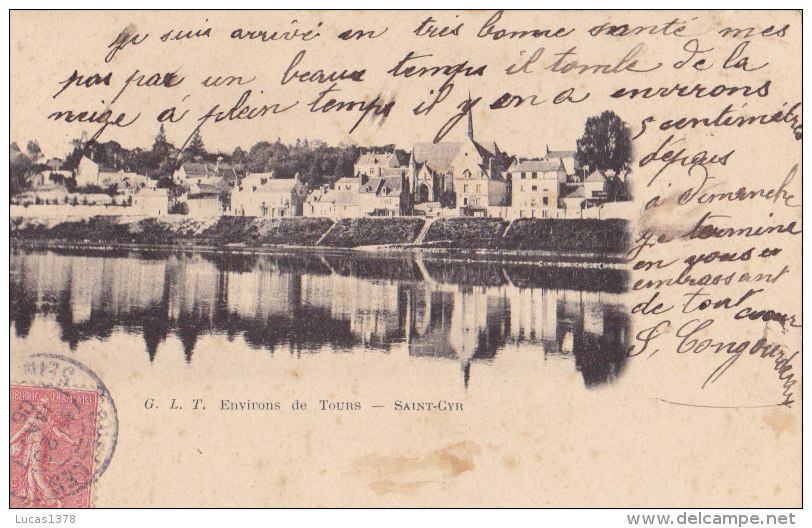 je suis arrivé en très bonne santé mes
pas par un beaux temps il tombe de la
neige á plein temps il y en a environs
5 centimètres
dépais
á dimanche
je termine
en vous en
embrassant
de tout coeur
S, Congourdeau
G. L. T. Environs de TOURS — SAINT-CYR
Lucas1378
www.delcampe.net